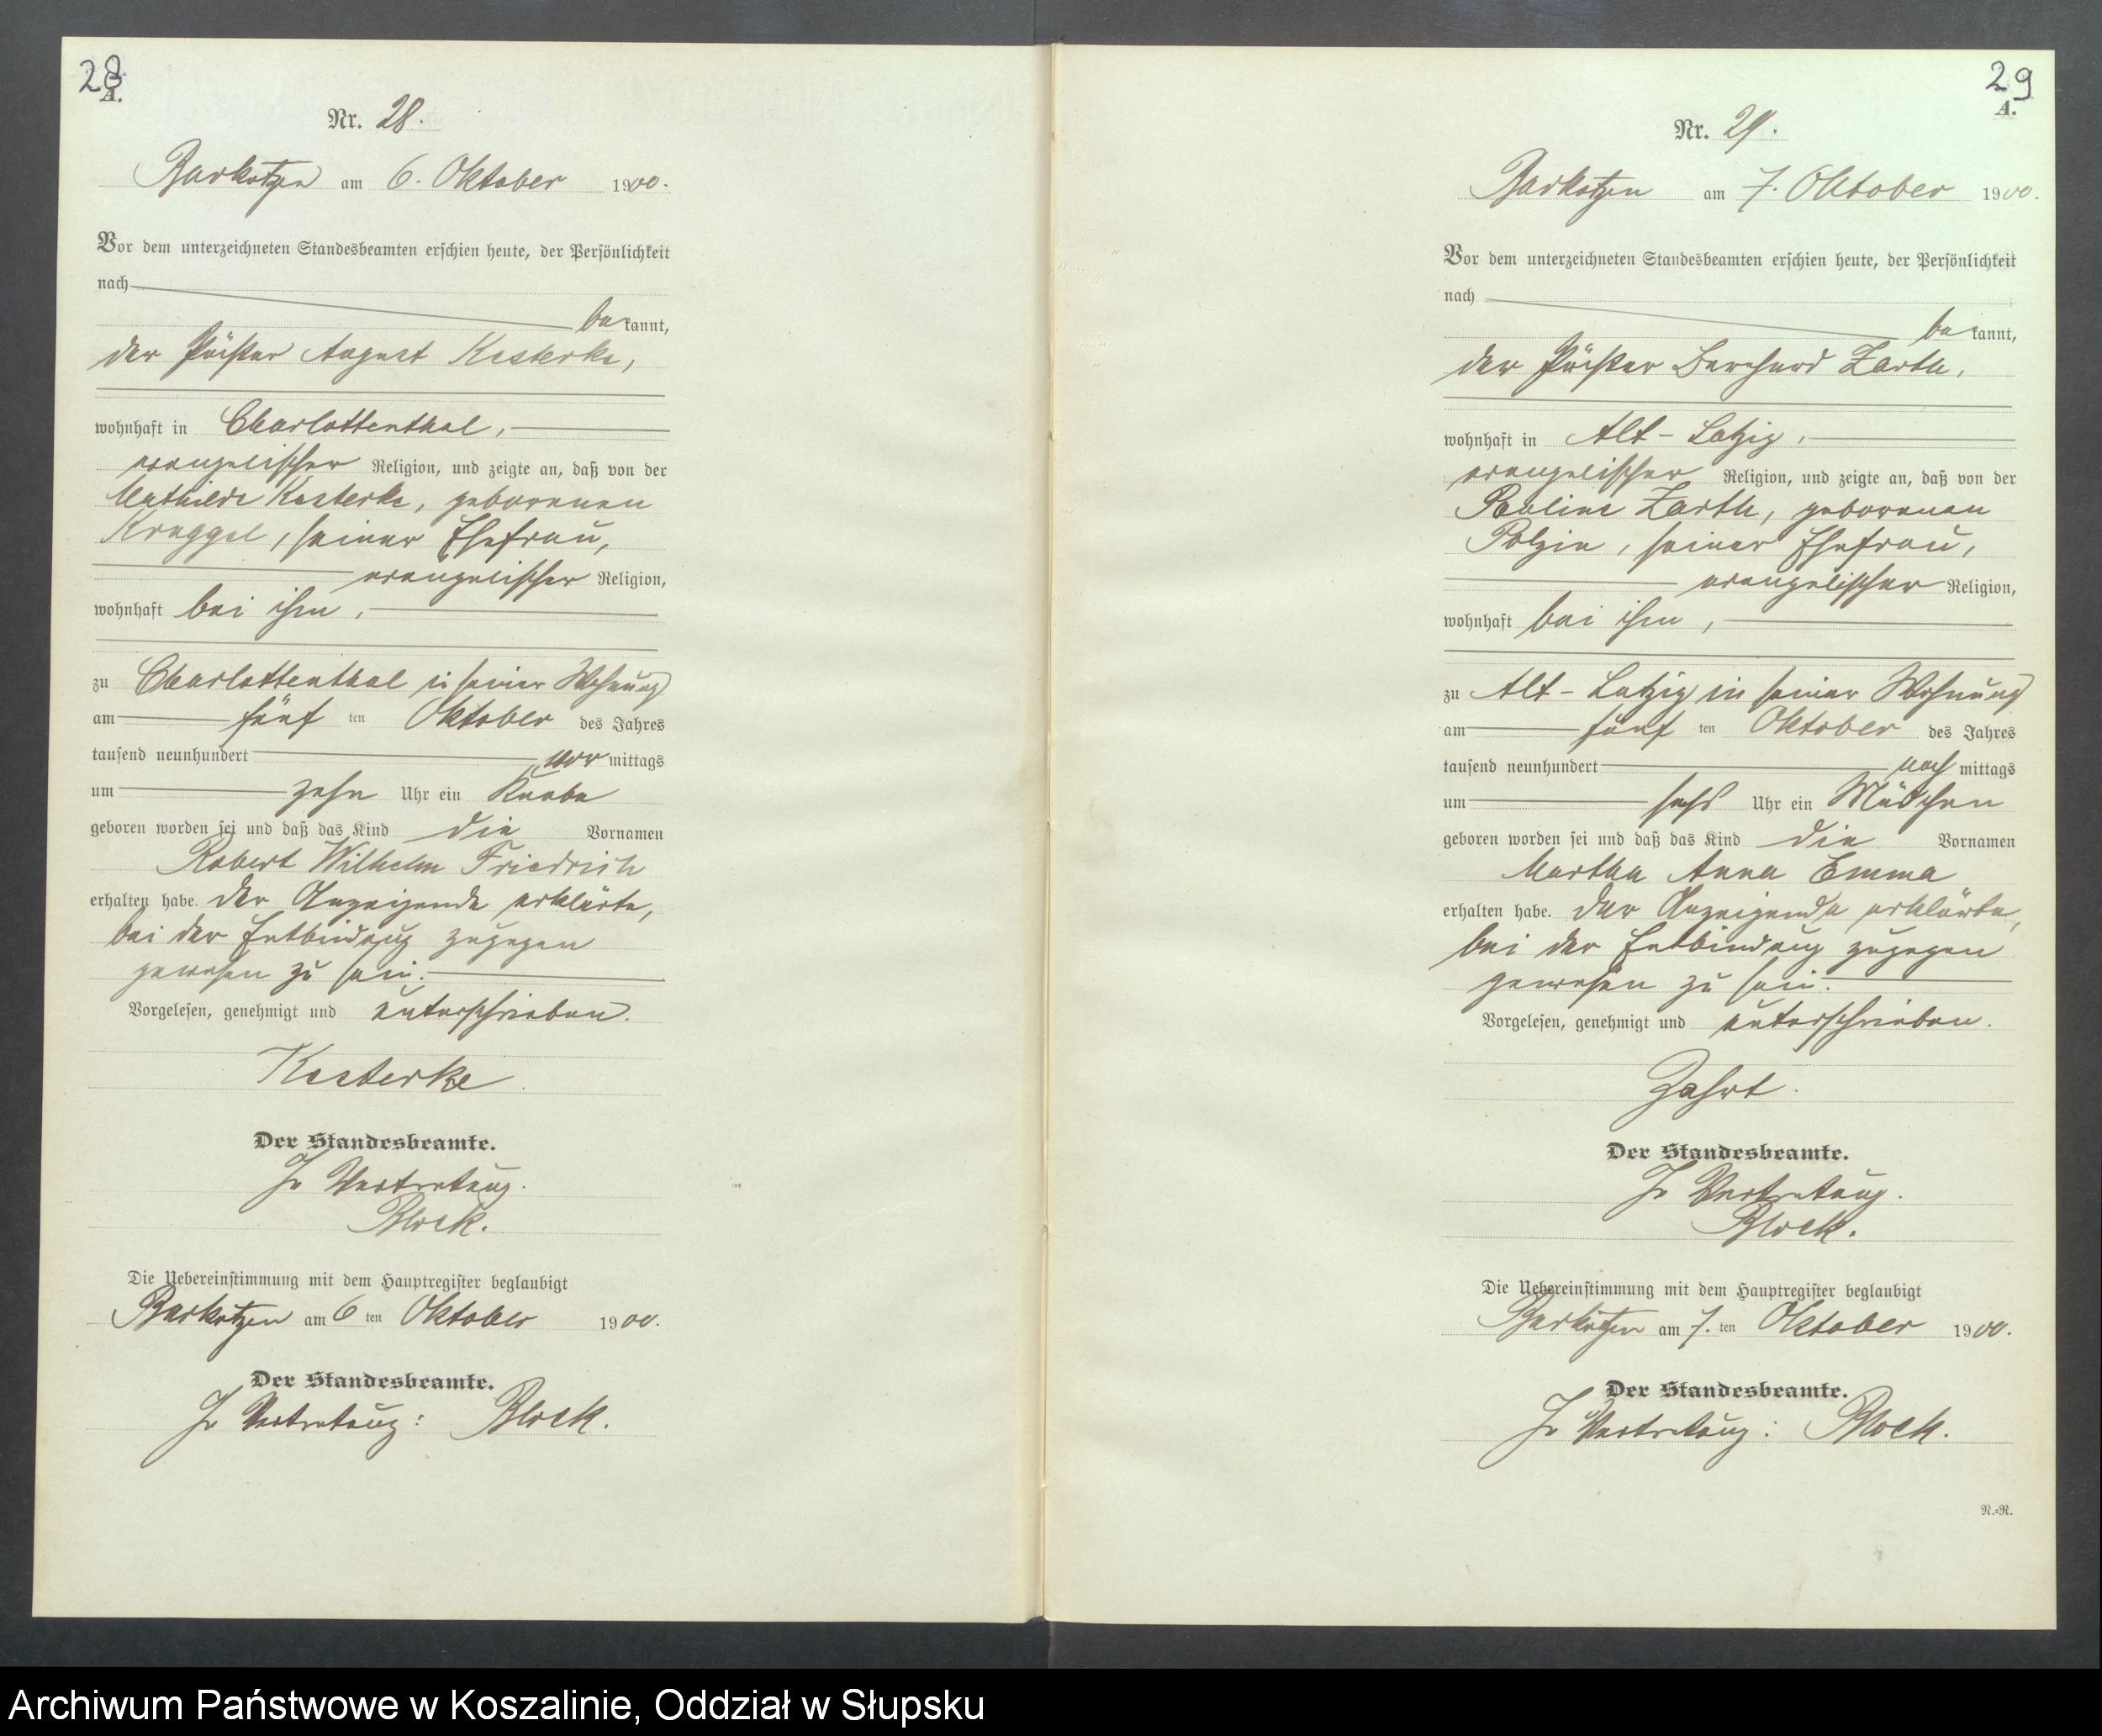 28
A.
Nr. 28.
Barkotzen am 6. Oktober 1900.
Vor dem unterzeichneten Standesbeamten erschien heute, der Persönlichkeit
nach
bekannt,
der Pächter August Kesterke,
wohnhaft in Charlottenthal,
evangelischer Religion, und zeigte an, daß von der
Mathilde Kesterke, geborenen
Kruggel, seiner Ehefrau,
evangelischer Religion,
wohnhaft bei ihm,
zu Charlottenthal in seiner Wohnung
am fünf ten Oktober des Jahres
tausend neunhundert vor mittags
um zehn Uhr ein Knabe
geboren worden sei und daß das Kind die Vornamen
Robert Wilhelm Friedrich
erhalten habe. Der Anzeigende erklärte,
bei der Entbindung zugegen
gewesen zu sein.
Vorgelesen, genehmigt und unterschrieben.
Kesterke
Der Standesbeamte.
In Vertretung.
Block.
Die Uebereinstimmung mit dem Hauptregister beglaubigt
Barkotzen am 6 ten Oktober 1900.
Der Standesbeamte.
In Vertretung: Block.
29
A.
Nr. 29.
Barkotzen am 7. Oktober 1900.
Vor dem unterzeichneten Standesbeamten erschien heute, der Persönlichkeit
nach
bekannt,
der Pächter Bernhard Zarth,
wohnhaft in Alt-Latzig,
evangelischer Religion, und zeigte an, daß von der
Pauline Zarth, geborenen
Polzin, seiner Ehefrau,
evangelischer Religion,
wohnhaft bei ihm,
zu Alt-Latzig in seiner Wohnung
am fünf ten Oktober des Jahres
tausend neunhundert nach mittags
um sechs Uhr ein Mädchen
geboren worden sei und daß das Kind die Vornamen
Martha Anna Emma
erhalten habe. Der Anzeigende erklärte,
bei der Entbindung zugegen
gewesen zu sein.
Vorgelesen, genehmigt und unterschrieben.
Zahrt.
Der Standesbeamte.
In Vertretung.
Block.
Die Uebereinstimmung mit dem Hauptregister beglaubigt
Barkotzen am 7. ten Oktober 1900.
Der Standesbeamte.
In Vertretung: Block.
N.=R.
Archiwum Państwowe w Koszalinie, Oddział w Słupsku